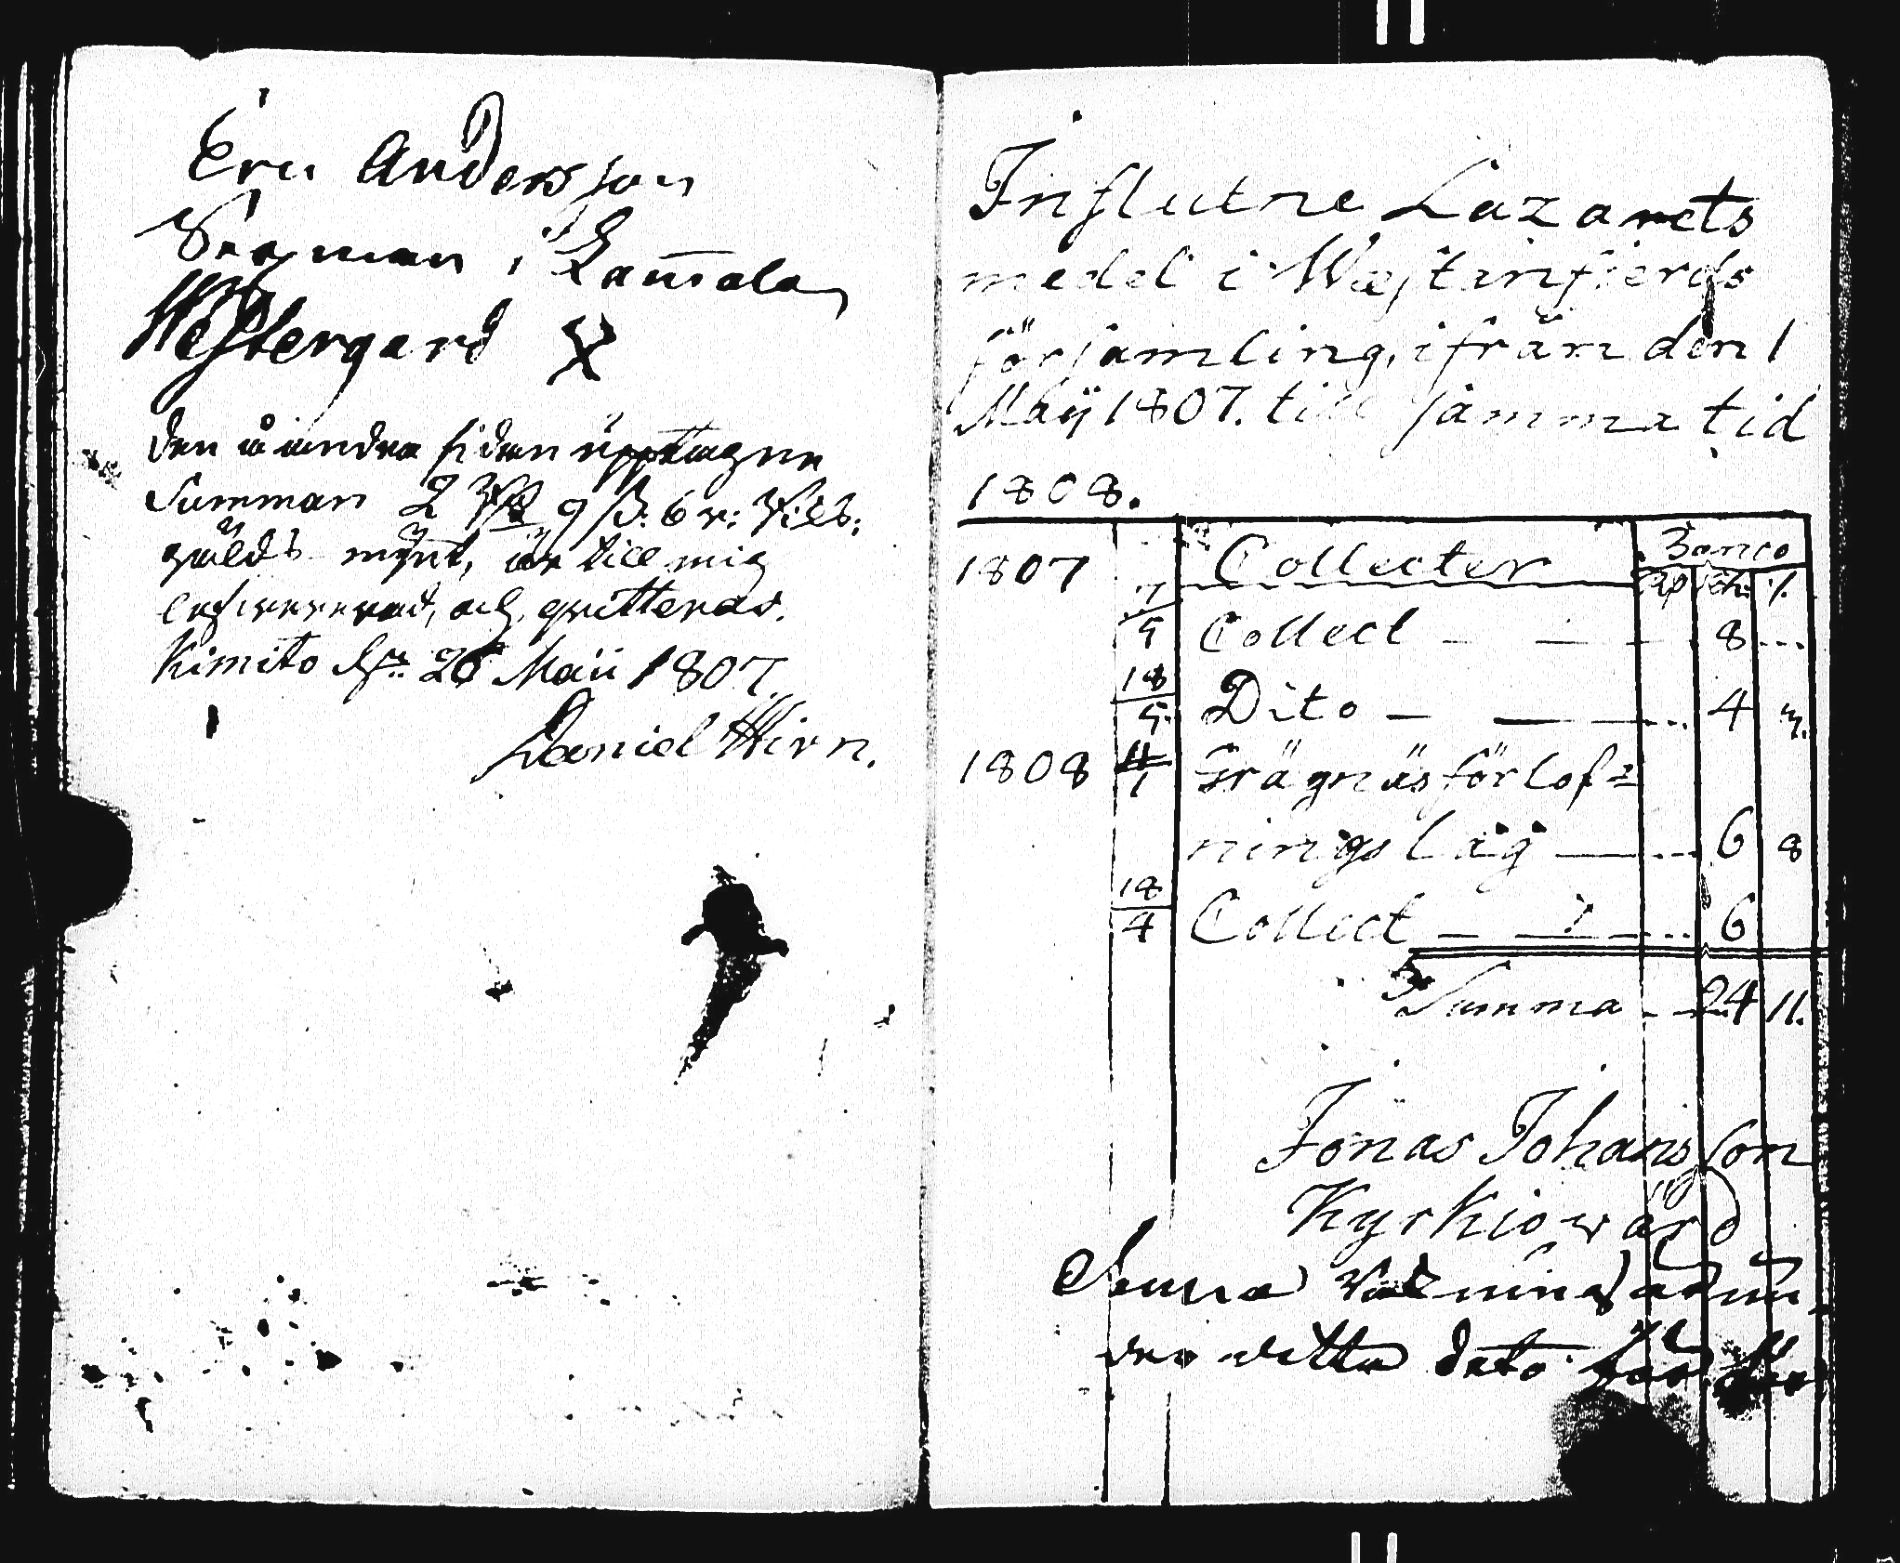 Eric Andersson
i Gammala
Westergard
den å andra sidan upptagne
Summan 2 Rd 9 ß: 6 r: Riks
gälds mynt, är till mig
lefwererad, och qvitteras.
Kimito d. 26 Maii 1807.
Daniel Hirn.
Influtne Lazarets
medel i Wæstanfierds
församling, ifrån den 1
Maÿ 1807. till samma tid
1808.
1807 Collecter Banco
sch: r.
7/5 Collect - - - 8 ...
18/5. Dito - - - 4 3.
1808 1 Frägnäs förlof-
nings låg - 6 8
18/4 Collect - - - 6
Summa - 24 11.
Jonas Johansson
Kyrkiowärd
detta dato